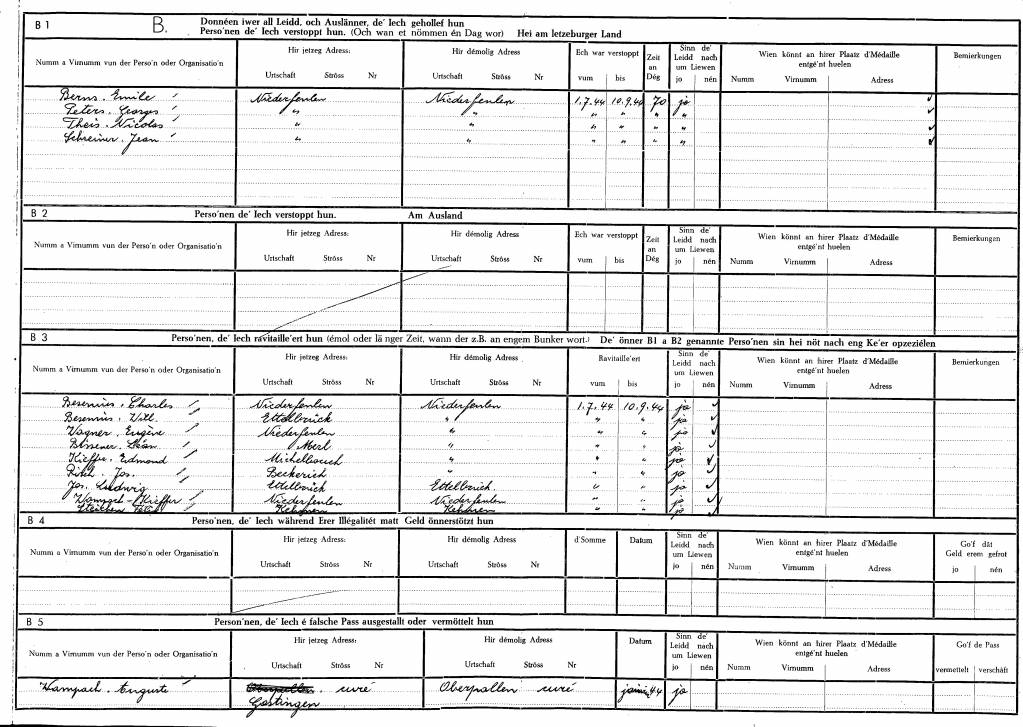 B 1 B. Donnéen iwer all Leidd, och Auslänner, de' Iech gehollef hun
Perso'nen de' Iech verstoppt hun. (Och wan et nömmen én Dag wor) Hei am letzeburger Land
Numm a Virnumm vun der Perso'n oder Organisatio'n Hir jetzeg Adress: Hir démolig Adress Ech war verstoppt Zeit an Dég Sinn de' Leidd nach um Liewen Wien könnt an hirer Plaatz d'Médaille entgé'nt huelen Bemierkungen
Urtschaft Ströss Nr Urtschaft Ströss Nr vum bis jo nén Numm Virnumm Adress
Berns, Emile Niederfeulen Niederfeulen 1.7.44 10.9.44 70 jo
Peters, Georges " " " " " "
Theis, Nicolas " " " " " "
Schreiner, Jean " " " " " "
B 2 Perso'nen de' Iech verstoppt hun. Am Ausland
Numm a Virnumm vun der Perso'n oder Organisatio'n Hir jetzeg Adress: Hir démolig Adress Ech war verstoppt Zeit an Dég Sinn de' Leidd nach um Liewen Wien könnt an hirer Plaatz d'Médaille entgé'nt huelen Bemierkungen
Urtschaft Ströss Nr Urtschaft Ströss Nr vum bis jo nén Numm Virnumm Adress
B 3 Perso'nen, de' Iech ravitaille'ert hun (émol oder länger Zeit, wann der z.B. an engem Bunker wort.) De' önner B1 a B2 genannte Perso'nen sin hei nöt nach eng Ke'er opzezielen
Numm a Virnumm vun der Perso'n oder Organisatio'n Hir jetzeg Adress: Hir démolig Adress Ravitaille'ert Sinn de' Leidd nach um Liewen Wien könnt an hirer Plaatz d'Médaille entgé'nt huelen Bemierkungen
Urtschaft Ströss Nr Urtschaft Ströss Nr vum bis jo nén Numm Virnumm Adress
Besenius, Charles Niederfeulen Niederfeulen 1.7.44 10.9.44 jo
Besenius, Will. Ettelbrück " " " jo
Wagner, Eugène Niederfeulen " " " jo
Bissener Merl " " " jo
Kieffer, Edmond Michelbouch " " " jo
Jos. Beckerich " " " jo
Jos. Ludwig Ettelbrück Ettelbrück " " jo
Wampach-Kieffer Niederfeulen Niederfeulen " " jo
Kehmen Kehmen " " jo
B 4 Perso'nen, de' Iech während Erer Illégalitét matt Geld önnerstötzt hun
Numm a Virnumm vun der Perso'n oder Organisatio'n Hir jetzeg Adress: Hir démolig Adress d'Somme Datum Sinn de' Leidd nach um Liewen Wien könnt an hirer Plaatz d'Médaille entgé'nt huelen Go'f dât Geld erem gefrot
Urtschaft Ströss Nr Urtschaft Ströss Nr jo nén Numm Virnumm Adress jo nén
B 5 Person'nen, de' Iech é falsche Pass ausgestallt oder vermöttelt hun
Numm a Virnumm vun der Perso'n oder Organisatio'n Hir jetzeg Adress: Hir démolig Adress Datum Sinn de' Leidd nach um Liewen Wien könnt an hirer Plaatz d'Médaille entgé'nt huelen Go'f de Pass
Urtschaft Ströss Nr Urtschaft Ströss Nr jo nén Numm Virnumm Adress vermettelt verschâft
Wampach, Auguste Oberpallen, curé Oberpallen curé 44 jo
Gostingen